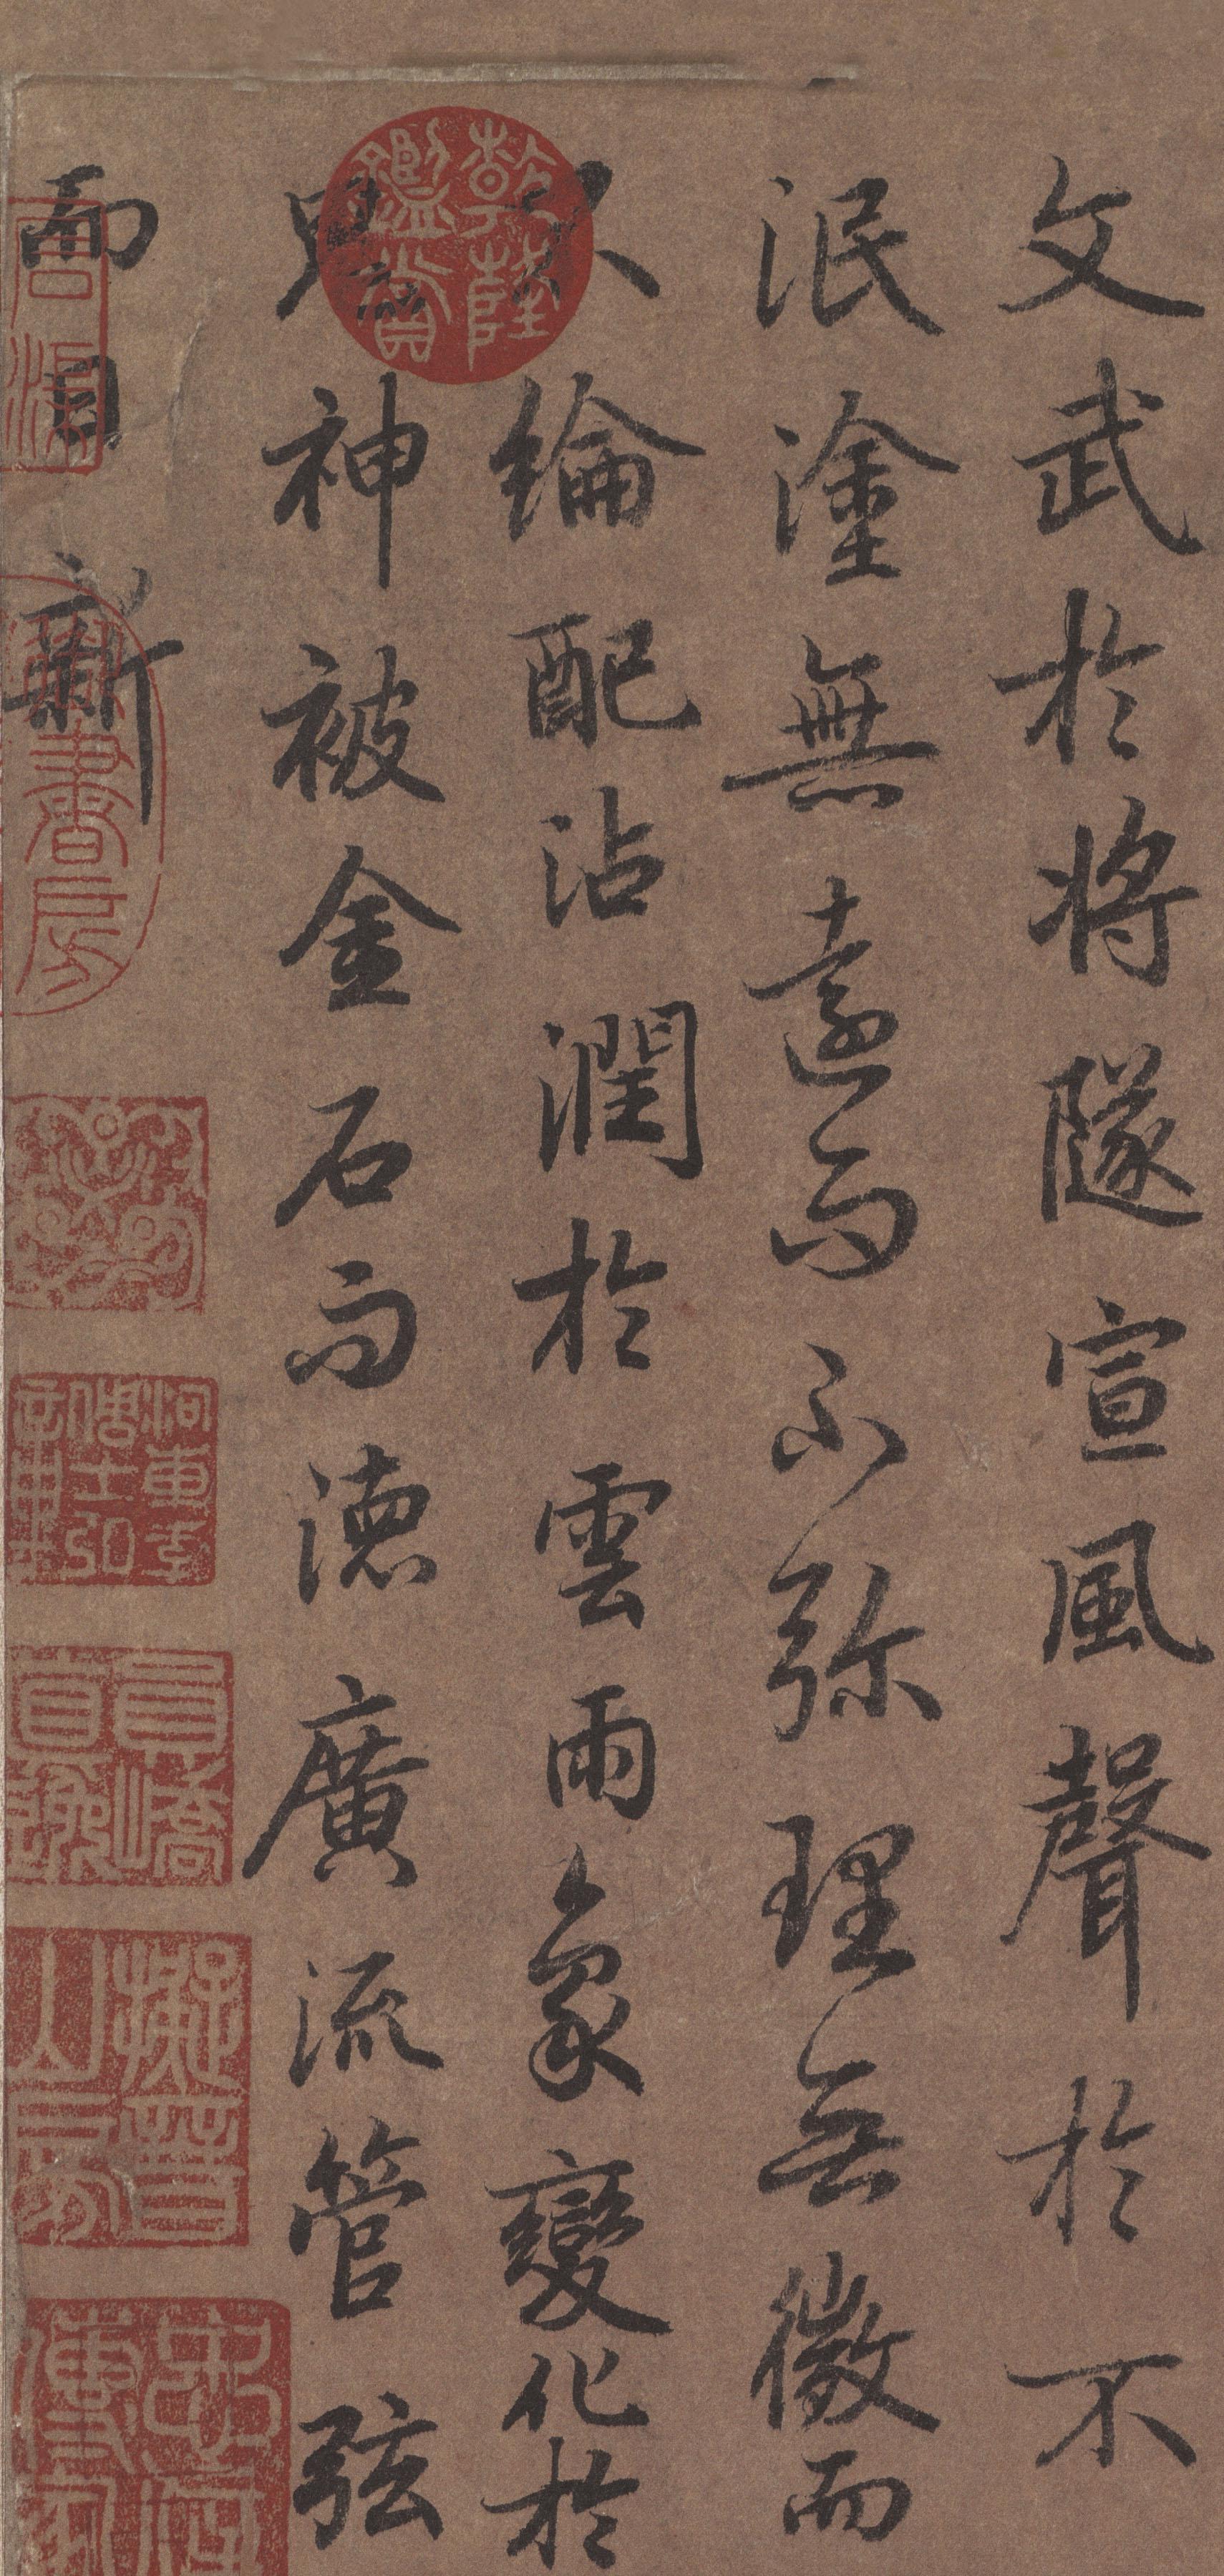 文武於將隧宣風聲於不
泯塗無遠而不弥理無微而
不綸配沾潤於雲雨象變化於
鬼神被金石而德廣流管弦
而日新
乾隆鑑賞
書房